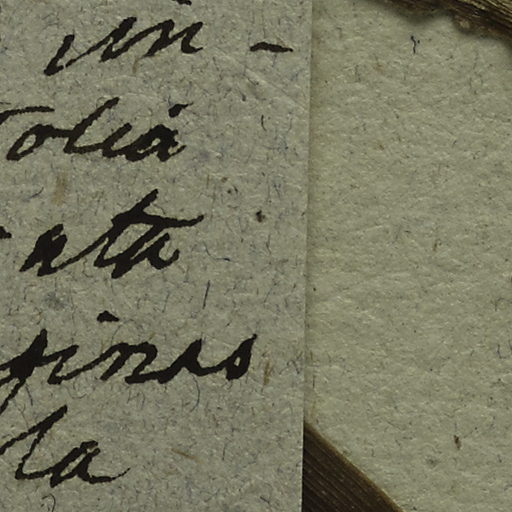 in-
folia
ata
pinas
la